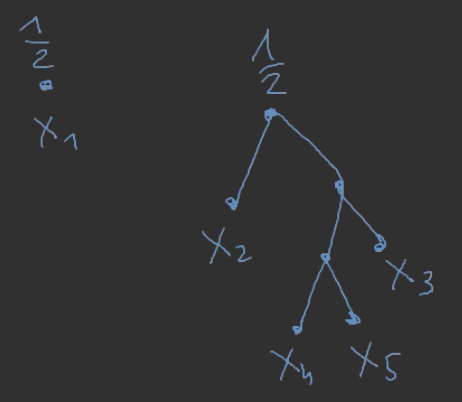 1/2
x₁
1/2
x₂
x₃
x₄
x₅